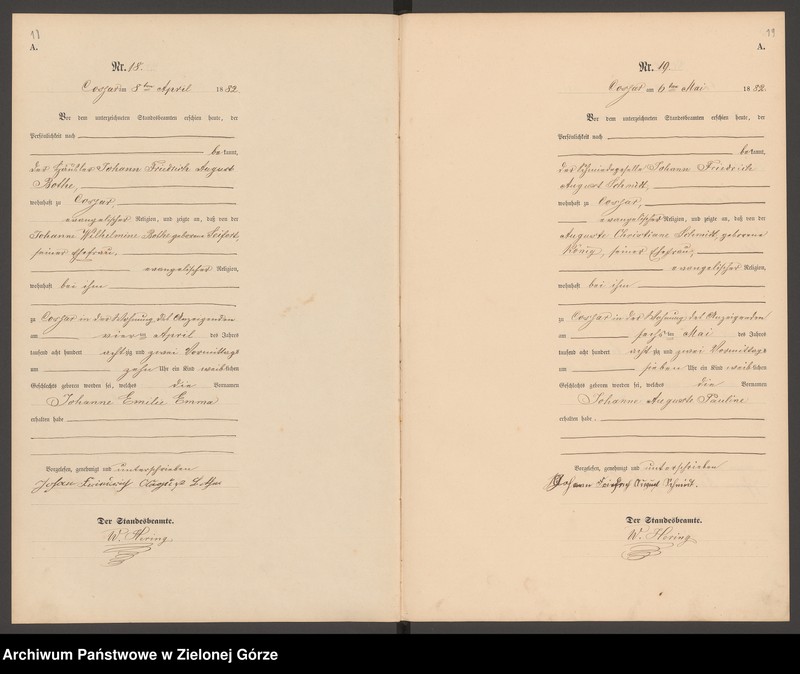 11
A.
Nr. 18.
Cossar am 8ten April 1882.
Vor dem unterzeichneten Standesbeamten erschien heute, der
Persönlichkeit nach
bekannt,
der Häusler Johann Friedrich August
Bothe,
wohnhaft zu Cossar,
evangelischer Religion, und zeigte an, daß von der
Johanne Wilhelmine Bothe geborene Seifert,
seiner Ehefrau,
evangelischer Religion,
wohnhaft bei ihm
zu Cossar in der Wohnung des Anzeigenden
am vierten April des Jahres
tausend acht hundert achtzig und zwei Vormittags
um zehn Uhr ein Kind weiblichen
Geschlechts geboren worden sei, welches die Vornamen
Johanne Emilie Emma
erhalten habe
Vorgelesen, genehmigt und unterschrieben
Johan Friedrich August Bothe
Der Standesbeamte.
W. Hering
A.
Nr. 19.
Cossar am 6ten Mai 1882.
Vor dem unterzeichneten Standesbeamten erschien heute, der
Persönlichkeit nach
bekannt,
der Schmiedegeselle Johann Friedrich
August Schmidt,
wohnhaft zu Cossar,
evangelischer Religion, und zeigte an, daß von der
Auguste Christiane Schmidt, geborene
König, seiner Ehefrau,
evangelischer Religion,
wohnhaft bei ihm
zu Cossar in der Wohnung des Anzeigenden
am sechsten Mai des Jahres
tausend acht hundert achtzig und zwei Vormittags
um sieben Uhr ein Kind weiblichen
Geschlechts geboren worden sei, welches die Vornamen
Johanne Auguste Pauline
erhalten habe.
Vorgelesen, genehmigt und unterschrieben
Johann Friedrich August Schmidt.
Der Standesbeamte.
W. Hering
Archiwum Państwowe w Zielonej Górze